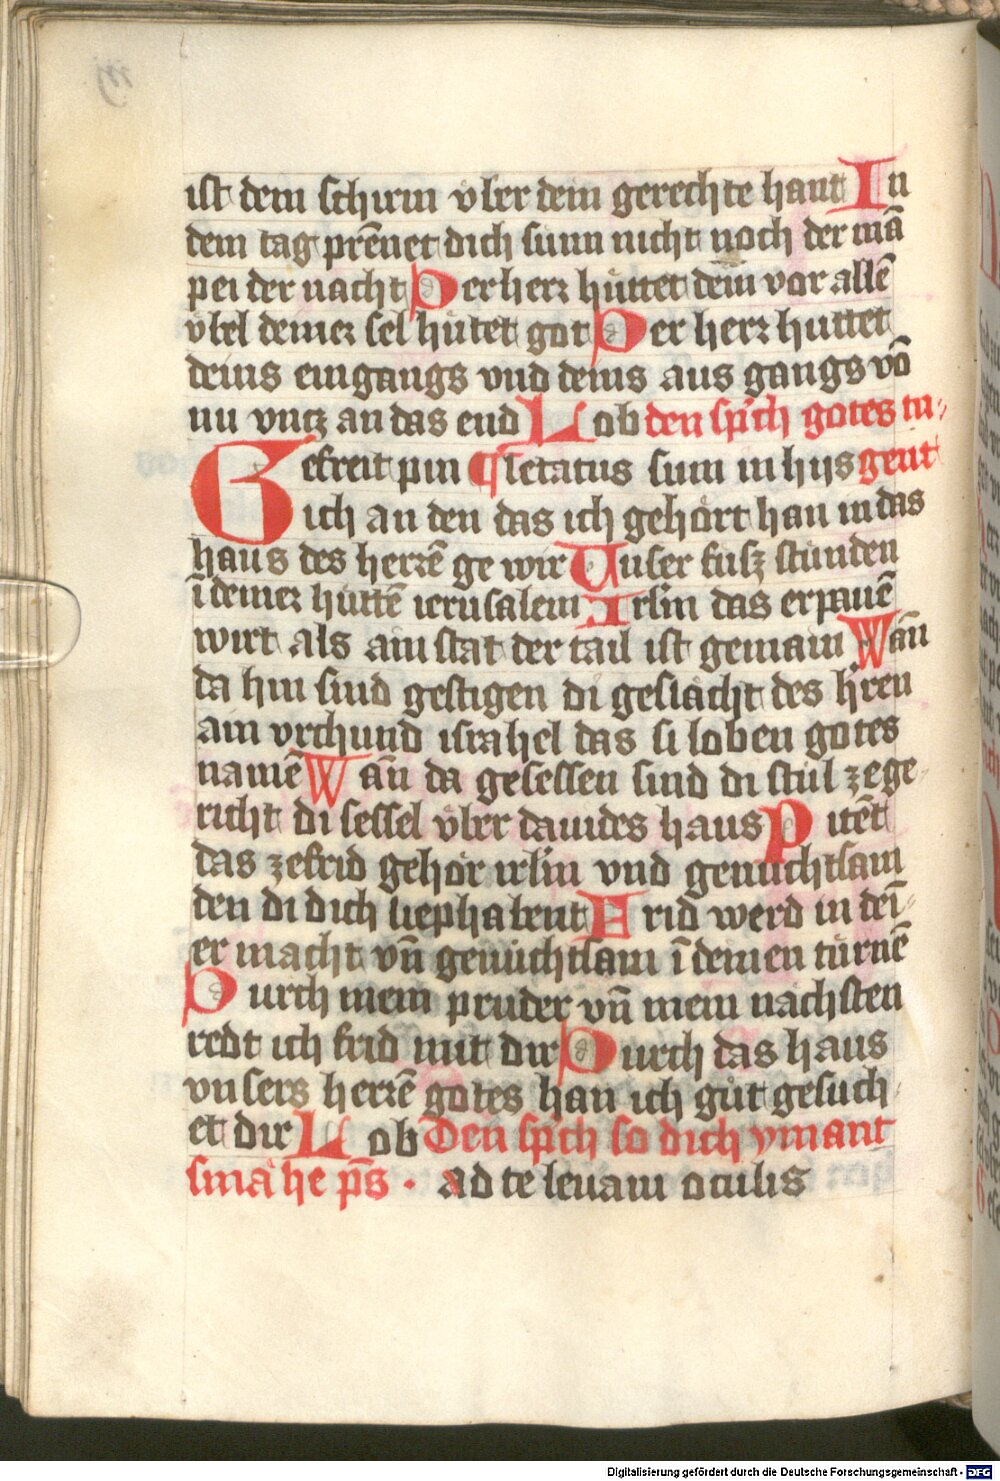 ist dem schirm vber dein gerechte hant In
dem tag prēnet dich sunn nicht noch der mā
pei der nacht Der herr hüttet dein vor allē
vbel deiner sel hütet got Der herr huttet
deins eingangs vnd deins aus gangs vō
nu vntz an das end Lob den sp̄ch gotes tu-
Gefreit pin Letatus sum in hiis gent
ich an den das ich gehört han in das
haus des herrē ge wir Unser fusz stunden
ī deiner hüttē ierusalem Irl̄m das erpauē
wirt als ain stat der tail ist gemain Wan̄
da hin sind gestigen di geslächt des h̄ren
ain vrchund israhel das si loben gotes
namē Wan̄ da gesessen sind di stül ze ge-
richt di sessel vber dauides haus Pitēt
das ze frid gehör irl̄m vnd genuchtsam
den di dich liephabent Frid werd in dei-
er macht vn̄ genüchtsam ī deinen türnē
Durch mein pruder vn̄ mein nächsten
redt ich frid mit dir Durch das haus
vnsers herrē gotes han ich güt gesuch-
et dir Lob Den sp̄ch so dich ymant
smähe p̄s · Ad te leuaui oculis
Digitalisierung gefördert durch die Deutsche Forschungsgemeinschaft - DFG